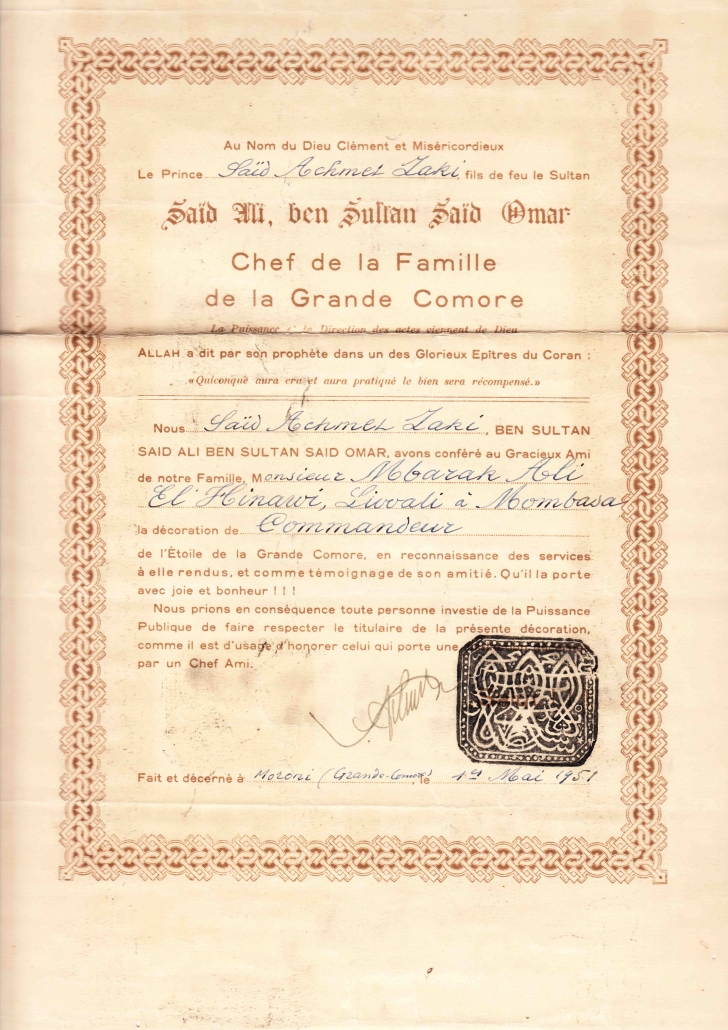 Au Nom du Dieu Clément et Miséricordieux
Le Prince Saïd Achmet Zaki, fils de feu le Sultan
Saïd Ali, ben Sultan Saïd Omar
Chef de la Famille
de la Grande Comore
La Puissance et la Direction des actes viennent de Dieu
ALLAH a dit par son prophète dans un des Glorieux Epîtres du Coran :
«Quiconque aura cru et aura pratiqué le bien sera récompensé.»
Nous Saïd Achmet Zaki, BEN SULTAN
SAID ALI BEN SULTAN SAID OMAR, avons conféré au Gracieux Ami
de notre Famille, Monsieur Mbarak Ali
El Hinawi, Liwali à Mombasa
la décoration de Commandeur
de l'Étoile de la Grande Comore, en reconnaissance des services
à elle rendus, et comme témoignage de son amitié. Qu'il la porte
avec joie et bonheur ! ! !
Nous prions en conséquence toute personne investie de la Puissance
Publique de faire respecter le titulaire de la présente décoration,
comme il est d'usage d'honorer celui qui porte une
par un Chef Ami.
Fait et décerné à Moroni (Grande-Comore), le 1er Mai 1951